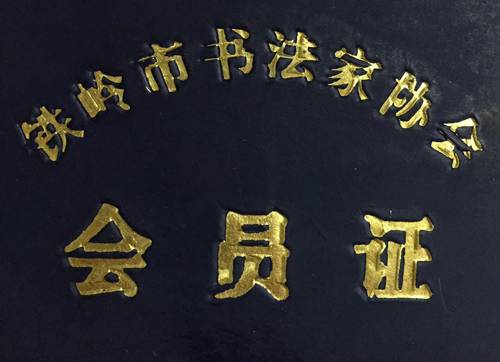 铁岭市书法家协会
会员证